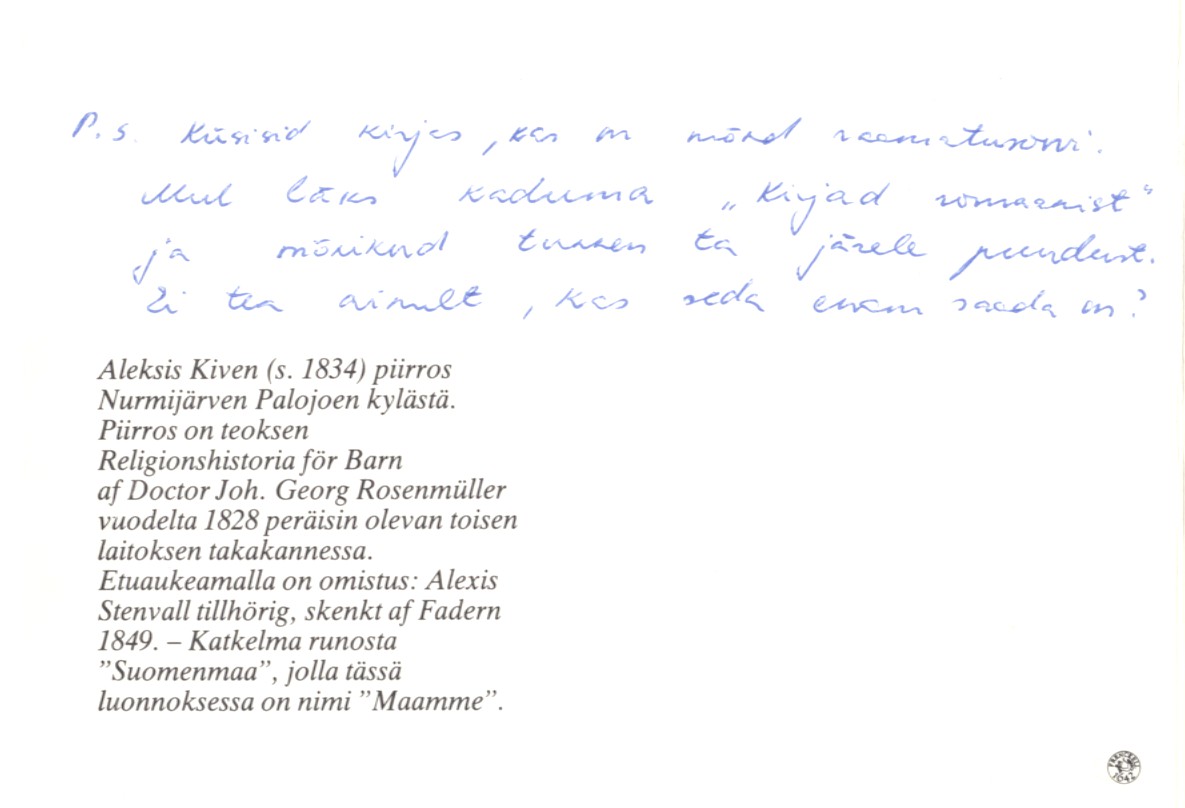 P.s. Küsisid kirjas, kas on mõnd raamatusoovi.
Mul läks kaduma „Kirjad romaanist"
ja mõnikord tunnen ta järele puudust.
Ei tea ainult, kas seda enam saada on?
Aleksis Kiven (s. 1834) piirros
Nurmijärven Palojoen kylästä.
Piirros on teoksen
Religionshistoria för Barn
af Doctor Joh. Georg Rosenmüller
vuodelta 1828 peräisin olevan toisen
laitoksen takakannessa.
Etuaukeamalla on omistus: Alexis
Stenvall tillhörig, skenkt af Fadern
1849. – Katkelma runosta
”Suomenmaa”, jolla tässä
luonnoksessa on nimi ”Maamme”.
FRENCKELL
1642